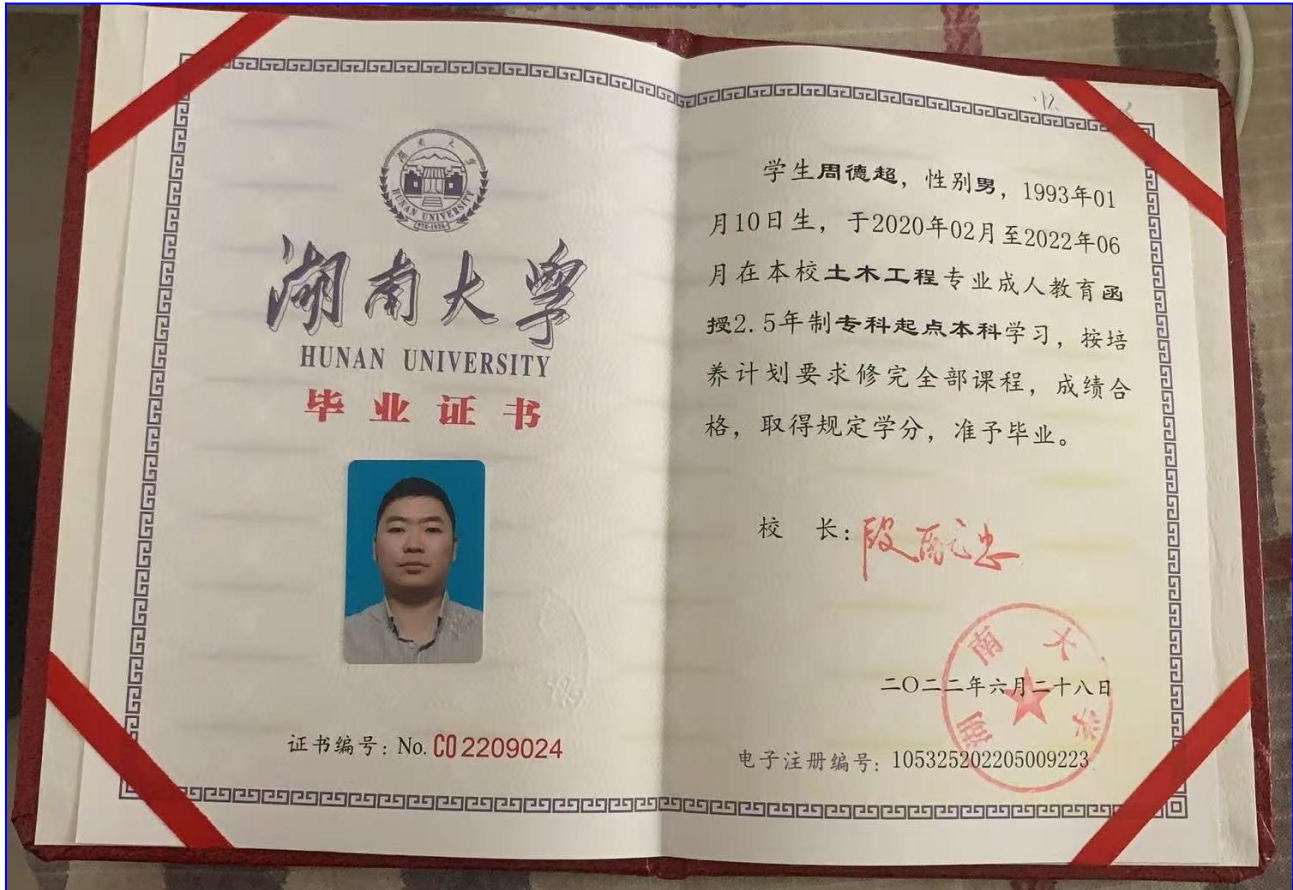 湖南大学
HUNAN UNIVERSITY
1926-1936
湖南大學
HUNAN UNIVERSITY
毕业证书
证书编号：No. C02209024
学生周德超，性别男，1993年01
月10日生，于2020年02月至2022年06
月在本校土木工程专业成人教育函
授2.5年制专科起点本科学习，按培
养计划要求修完全部课程，成绩合
格，取得规定学分，准予毕业。
校 长：
二〇二二年六月二十八日
湖南大学
电子注册编号：105325202205009223